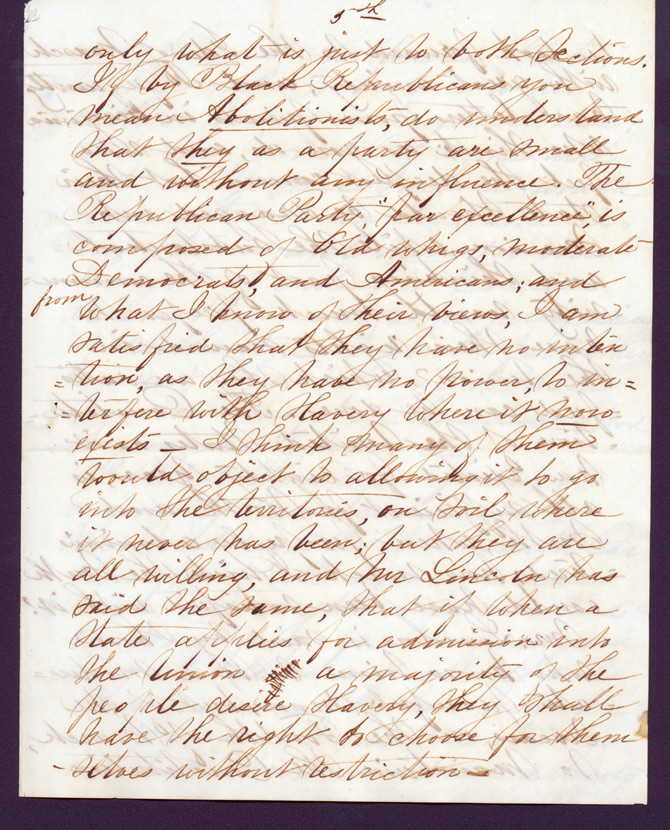 5th
only what is just to both Sections.
If by Black Republicans you
mean Abolitionists, do understand
that they as a party are small
and without any influence. The
Republican Party, "par excellence", is
composed of Old Whigs, moderate
Democrats, and Americans; and
from
what I know of their views, I am
satisfied that they have no inten
=tion, as they have no power, to in=
=terfere with slavery where it now
exists – I think many of them
would object to allowing it to go
into the territories, on soil where
it never has been; but they are
all willing, and Mr Lincoln has
said the same, that if when a
State applies for admission into
the Union a majority of the
people desire slavery, they shall
have the right to choose for them
-selves without restriction –